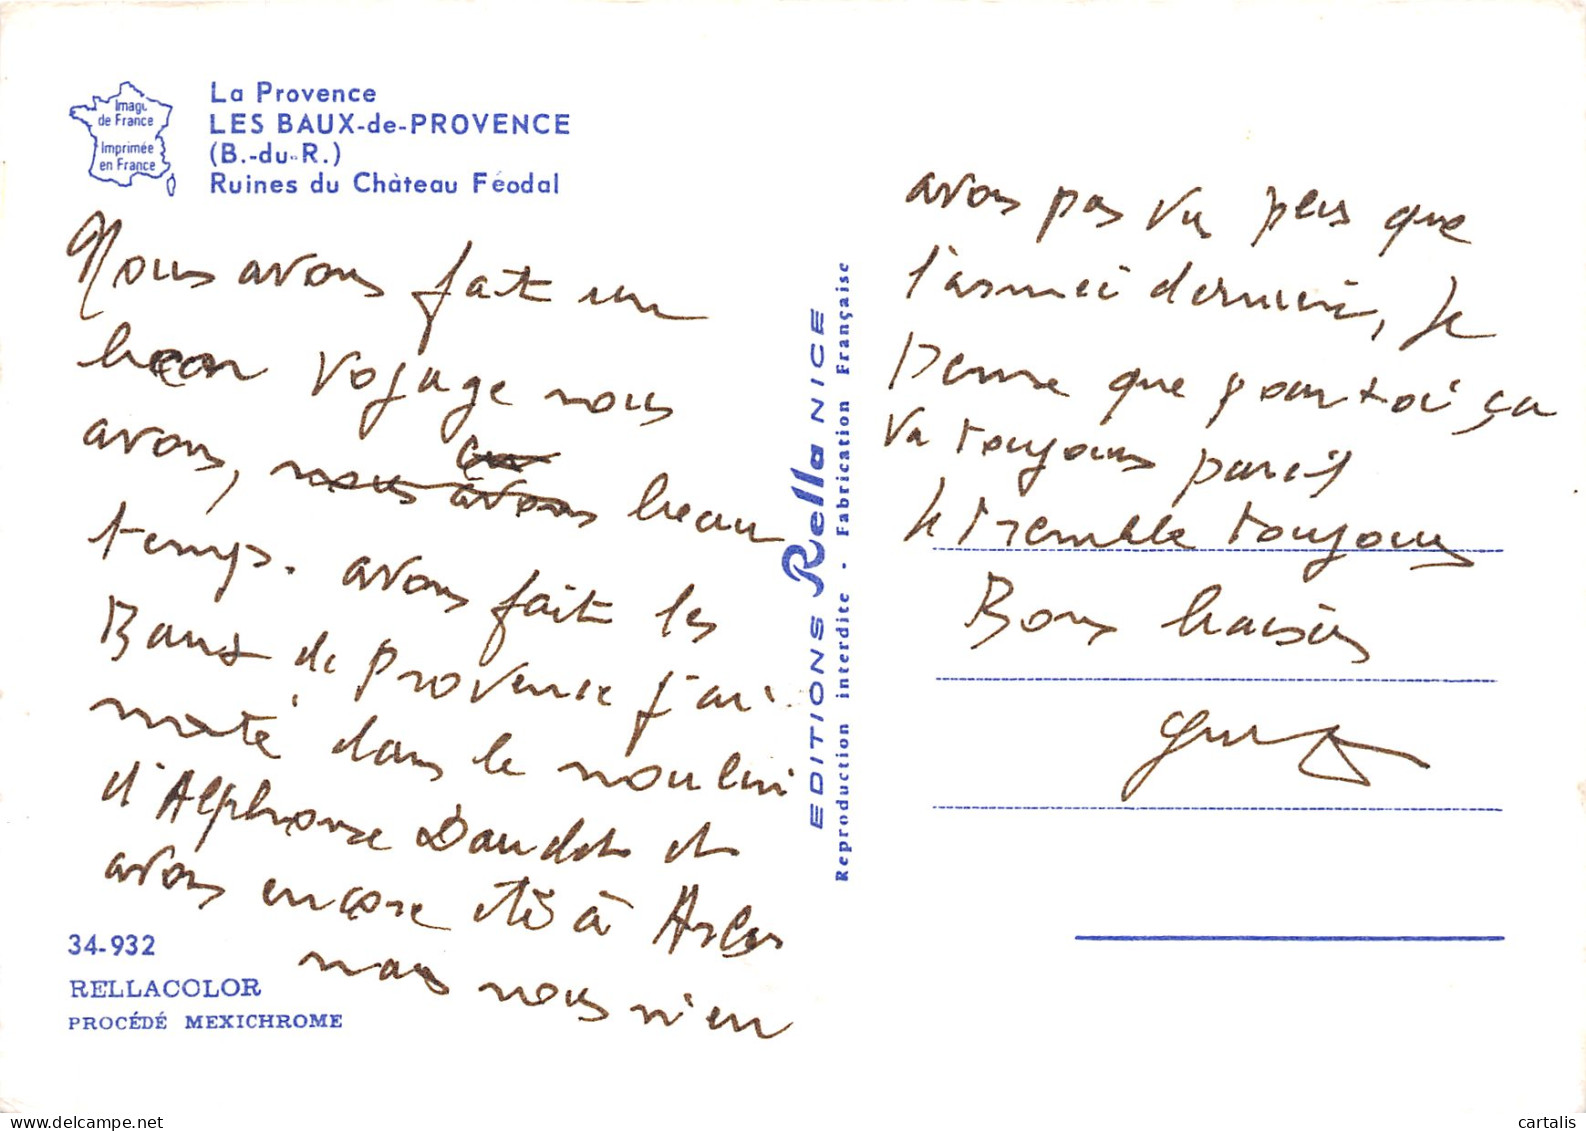 Image
de France
Imprimée
en France
La Provence
LES BAUX-de-PROVENCE
(B.-du-R.)
Ruines du Château Féodal
Nous avons fait un
beau voyage nous
avons, nous avons beau
temps. avons fait les
Baux de provence j'ai
monté dans le moulin
d'Alphonse Daudet et
avons encore été à Arles
mais nous n'en
34-932
RELLACOLOR
PROCÉDÉ MEXICHROME
EDITIONS Rella NICE
Reproduction interdite - Fabrication Française
avons pas vu plus que
l'année dernière, Je
pense que pour toi ça
va toujours pareil
Je tremble toujours
Bons baisers
cartalis